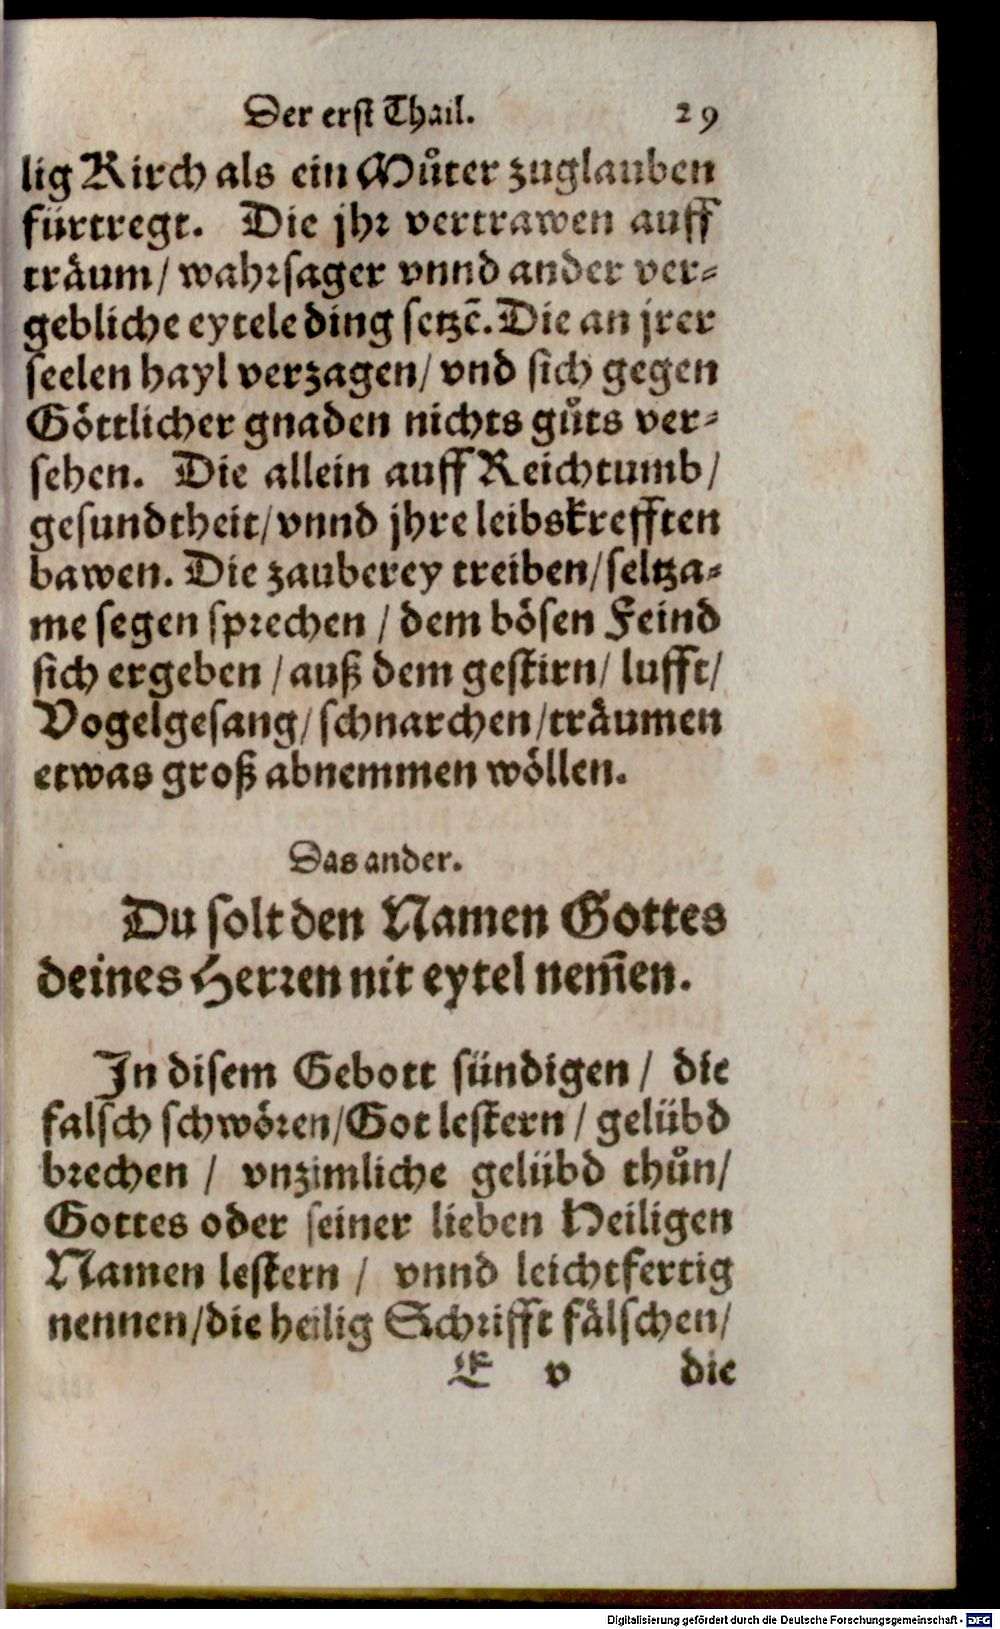 Der erst Thail. 29
lig Kirch als ein Můter zuglauben
fürtregt. Die jhr vertrawen auff
träum / wahrsager vnnd ander ver⸗
gebliche eytele ding setzē. Die an jrer
seelen hayl verzagen / vnd sich gegen
Göttlicher gnaden nichts gůts ver⸗
sehen. Die allein auff Reichtumb /
gesundtheit / vnnd jhre leibskrefften
bawen. Die zauberey treiben / seltza⸗
me segen sprechen / dem bösen Feind
sich ergeben / auß dem gestirn / lufft /
Vogelgesang / schnarchen / träumen
etwas groß abnemmen wöllen.
Das ander.
Du solt den Namen Gottes
deines Herren nit eytel nem̃en.
In disem Gebott sündigen / die
falsch schwören / Got lestern / gelübd
brechen / vnzimliche gelübd thůn /
Gottes oder seiner lieben Heiligen
Namen lestern / vnnd leichtfertig
nennen / die heilig Schrifft fälschen /
E v die
Digitalisierung gefördert durch die Deutsche Forschungsgemeinschaft - DFG